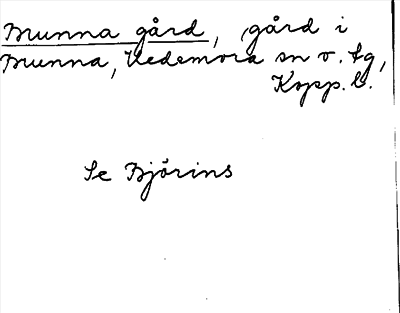 Brunna gård, gård i
Brunna, Vedemora sn o. tg,
Kopp. l.
Se Björins